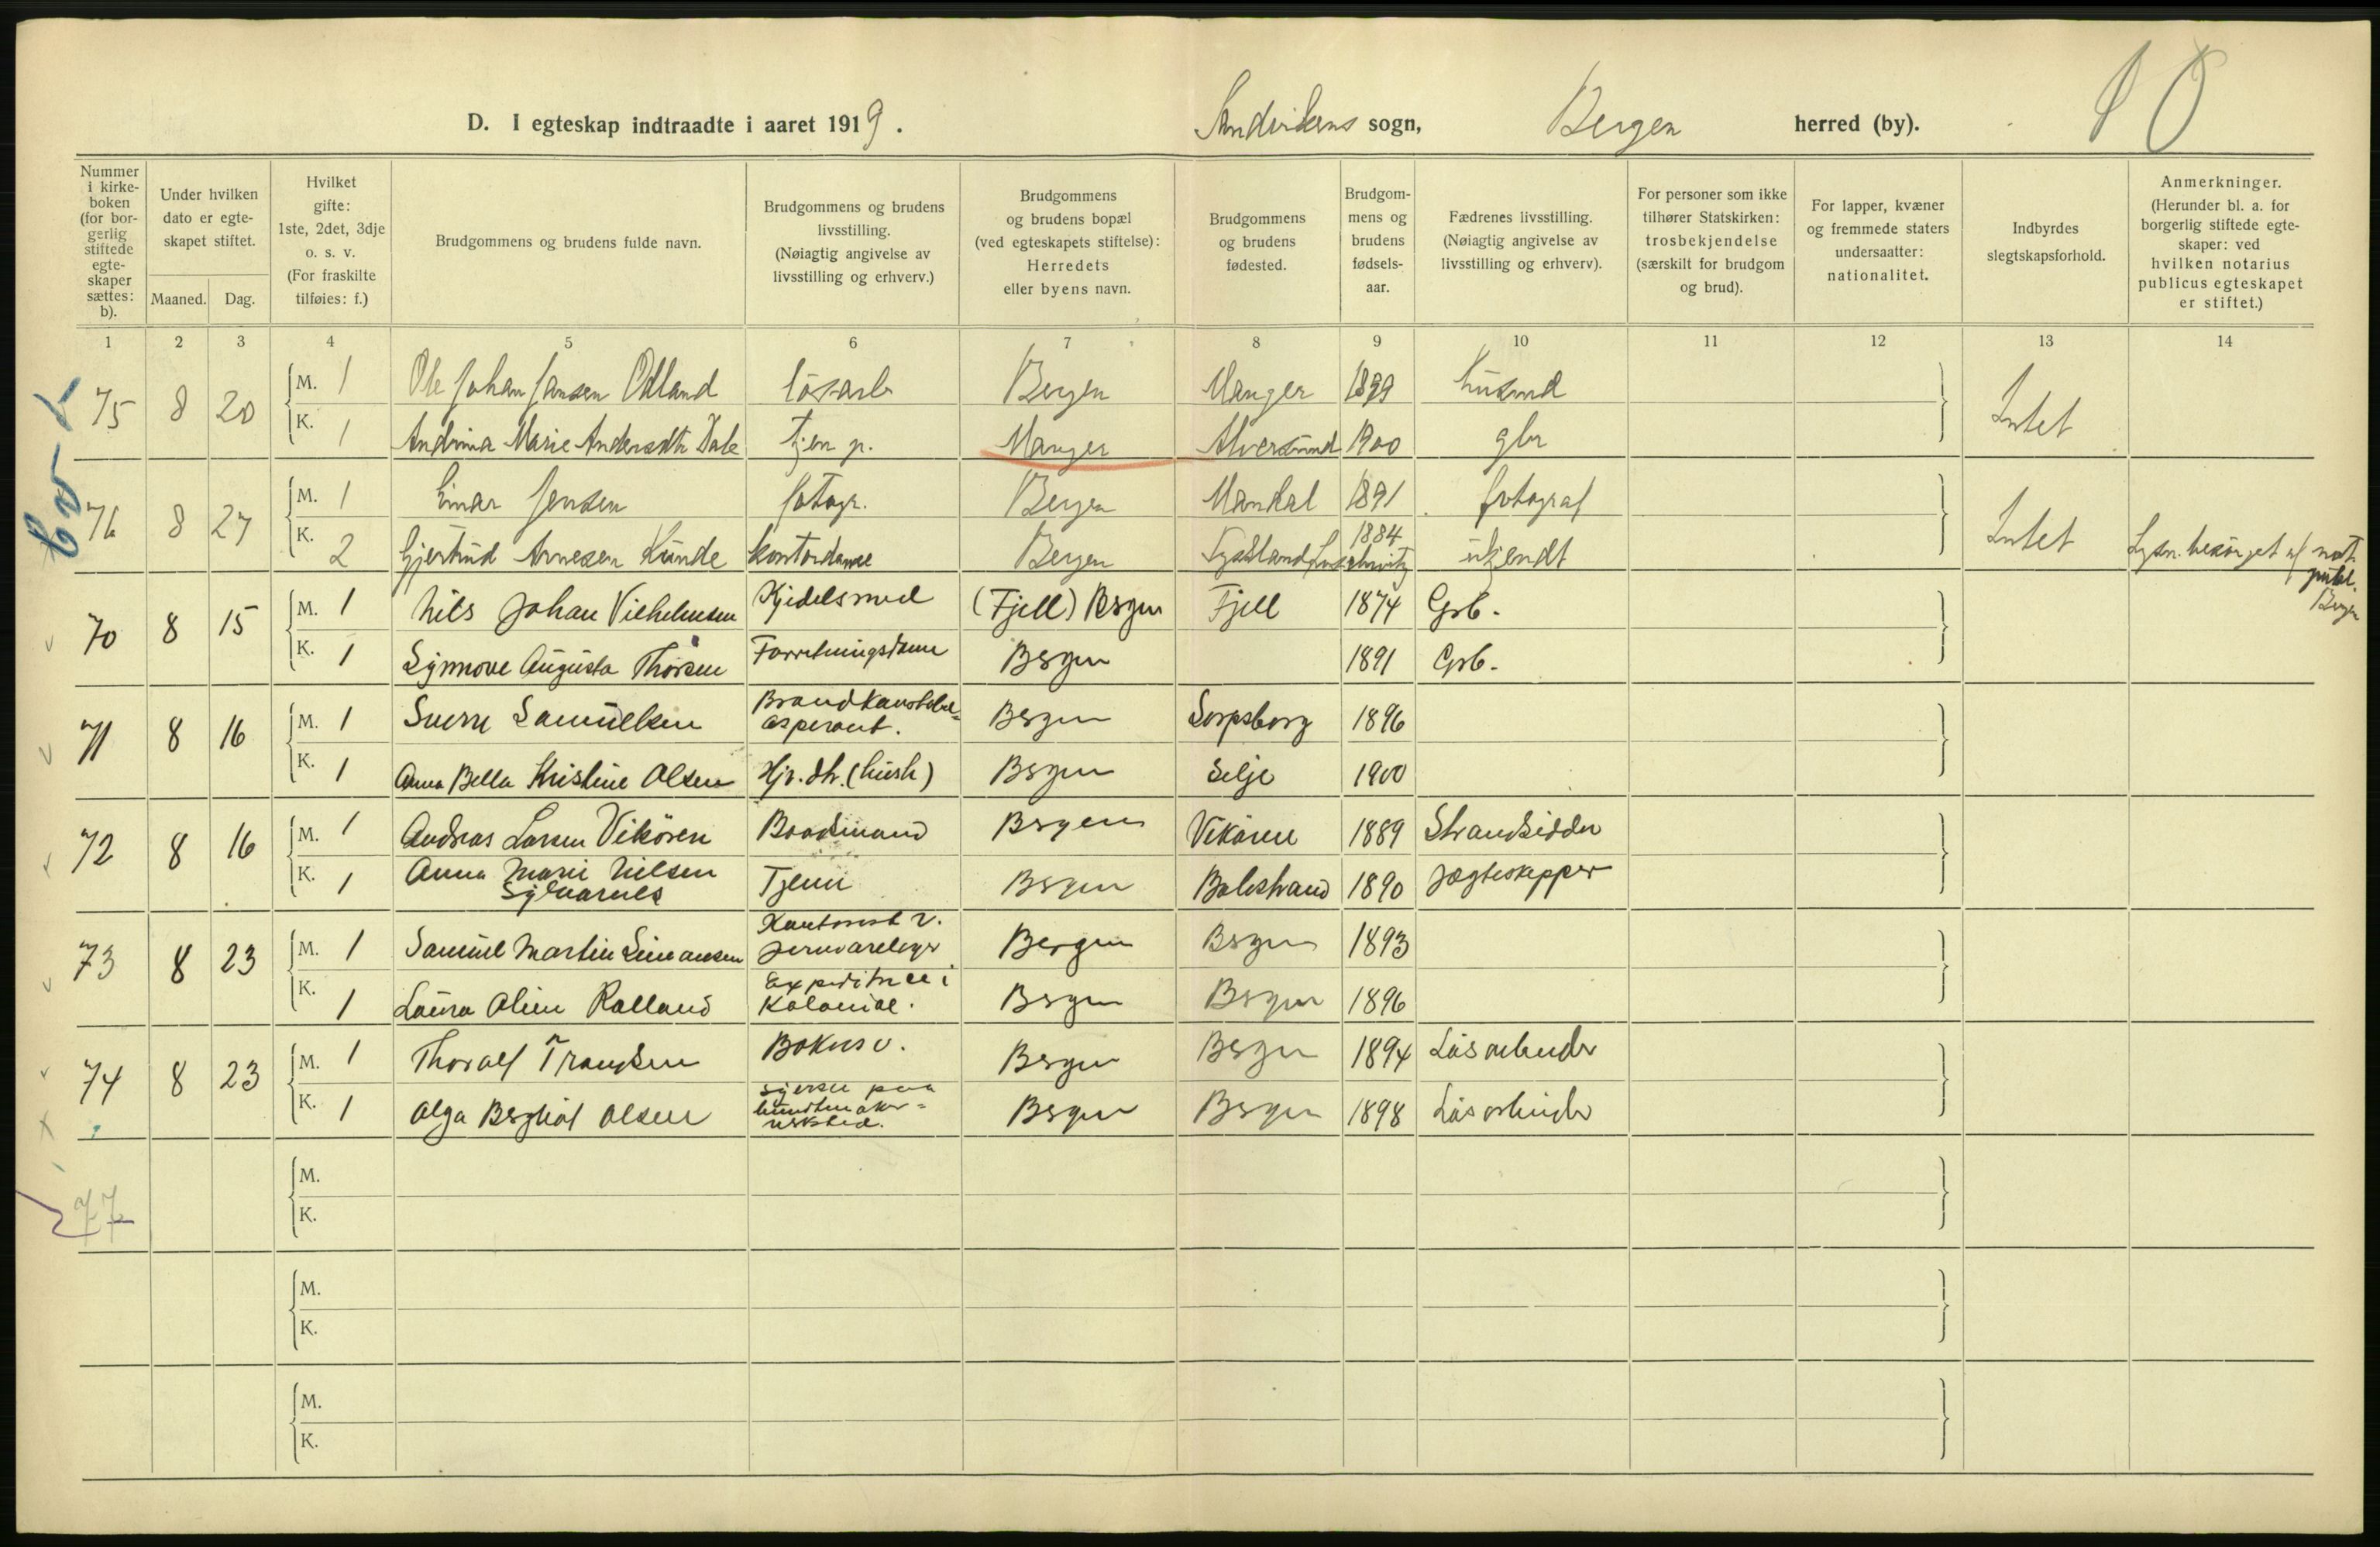 D. I egteskap indtraadte i aaret 1919. Sandvikens sogn, Bergen herred (by).
Nummer i kirke-boken (for bor-gerlig stiftede egte-skaper sættes: b). Under hvilken dato er egte-skapet stiftet. Maaned. Dag. Hvilket gifte: 1ste, 2det, 3dje o. s. v. (For fraskilte tilføies: f.) Brudgommens og brudens fulde navn. Brudgommens og brudens livsstilling. (Nøiagtig angivelse av livsstilling og erhverv.) Brudgommens og brudens bopæl (ved egteskapets stiftelse): Herredets eller byens navn. Brudgommens og brudens fødested. Brudgom-mens og brudens fødsels-aar. Fædrenes livsstilling. (Nøiagtig angivelse av livsstilling og erhverv). For personer som ikke tilhører Statskirken: trosbekjendelse (særskilt for brudgom og brud). For lapper, kvæner og fremmede staters undersaatter: nationalitet. Indbyrdes slegtskapsforhold. Anmerkninger. (Herunder bl. a. for borgerlig stiftede egte-skaper: ved hvilken notarius publicus egteskapet er stiftet.)
1 2 3 4 5 6 7 8 9 10 11 12 13 14
75 8 20 M. 1 Ole Johan Jansen Odland løsarb Bergen Manger 1899 husmd Intet
K. 1 Andrina Marie Andersdtr Dale tjen p. Manger Alversund 1900 gbr
76 8 27 M. 1 Einar Jensen fotogr. Bergen Mandal 1891 fotograf Intet
K. 2 Gjertrud Arnesen Kunde kontordame Bergen 1884 ukjendt Lysn. besørget af not. publ. Bergen
70 8 15 M. 1 Nils Johan Vilhelmsen Kjedelsmed (Fjell) Bergen Fjell 1874 Grb.
K. 1 Synnove Augusta Thorsen Forretningsdame Bergen 1891 Grb.
71 8 16 M. 1 Sverre Samuelsen Brandkonstabel= aspirant. Bergen Sarpsborg 1896
K. 1 Anna Bella Kristine Olsen Hjv. dtr. (hush) Bergen Selje 1900
72 8 16 M. 1 Andreas Larsen Vikøren Baadsmand Bergen Vikøren 1889 Strandsidder
K. 1 Anna Marie Nilsen Sylvarnes Tjener Bergen Balestrand 1890 Jægteskipper
73 8 23 M. 1 Samuel Martin Simonsen Kontorist v. jernvarelager Bergen Bergen 1893
K. 1 Laura Oline Rolland Expeditrice i Kolonial. Bergen Bergen 1896
74 8 23 M. 1 Thoralf Frantsen Bakersv. Bergen Bergen 1894 Løsarbeider
K. 1 Olga Bergliot Olsen syerske paa buntmaker= verksted. Bergen Bergen 1898 Løsarbeider
77 M.
K.
M.
K.
M.
K.